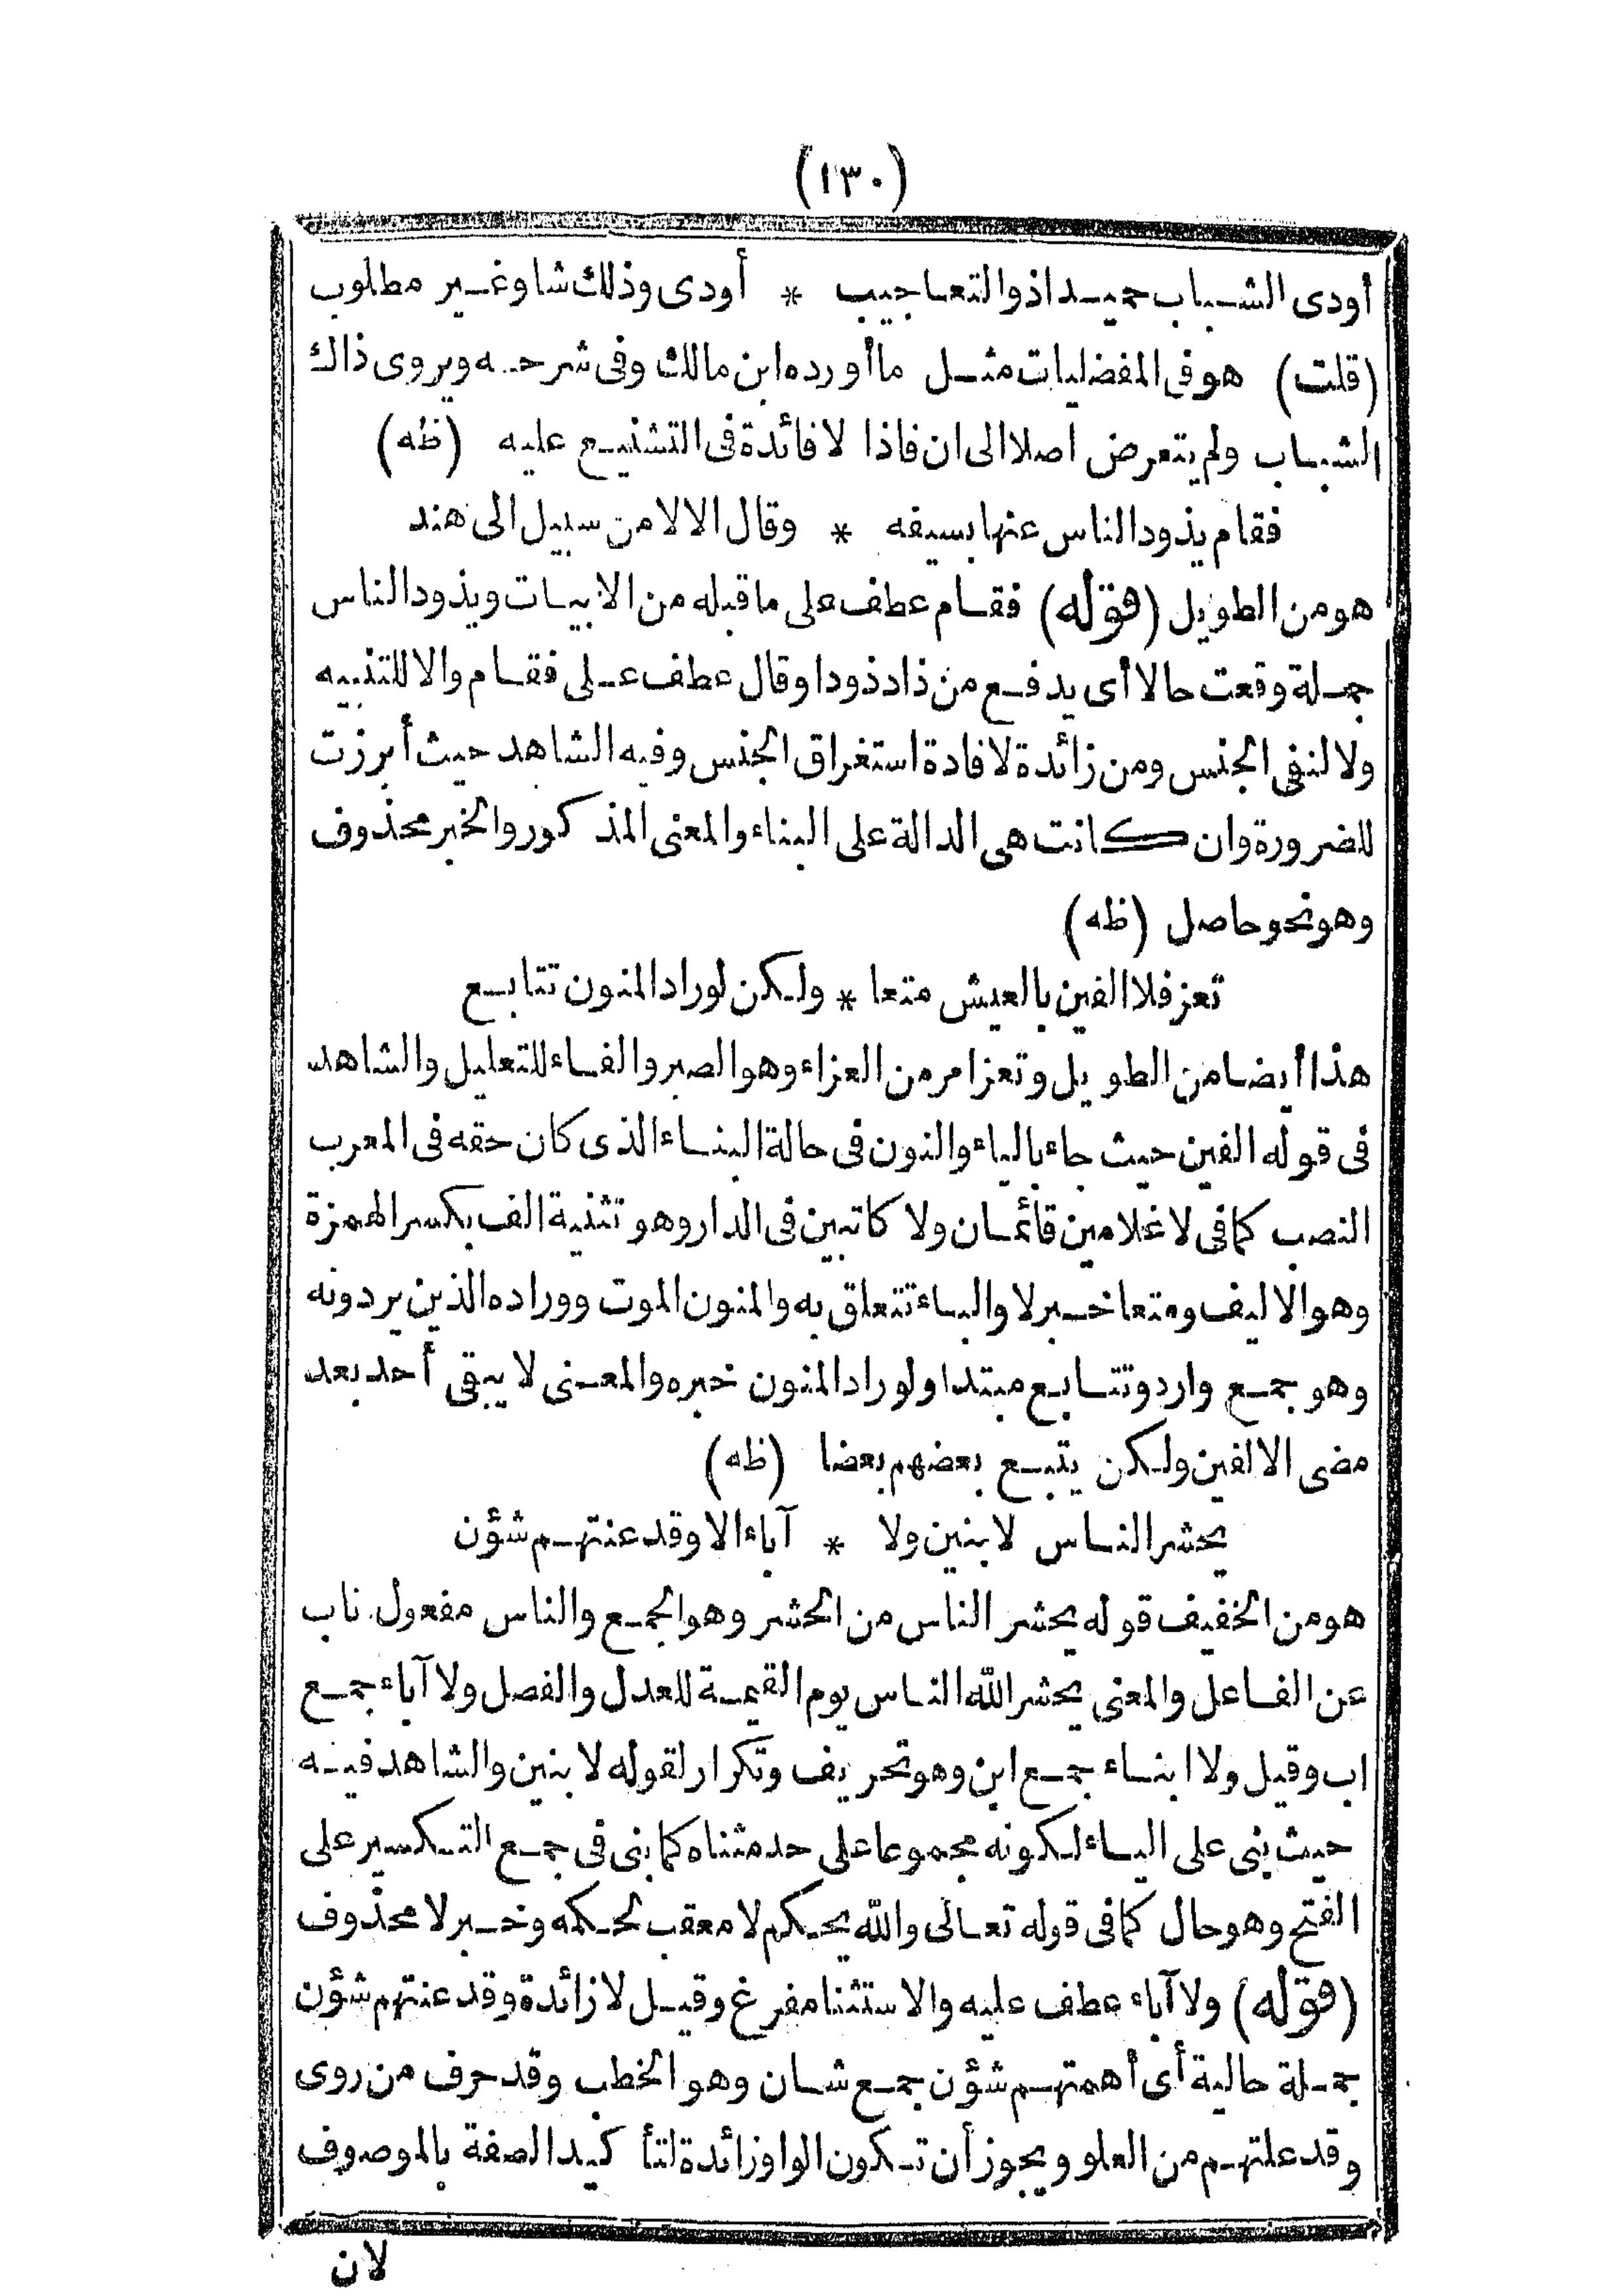 (١٣٠)
أودى الشباب حميدا ذو التعاجيب * أودى وذلك شاو غير مطلوب
(قلت) هو فى المفضليات مثل ما أورده ابن مالك وفى شرحه ويروى ذاك
الشباب ولم يتعرض اصلا الى ان فاذا لا فائدة فى التشنيع عليه (ظه)
فقام يذود الناس عنها بسيفه * وقال الا لا من سبيل الى هند
هو من الطويل (قوله) فقام عطف على ما قبله من الابيات ويذود الناس
جملة وقعت حالا أى يدفع من ذاد ذودا وقال عطف على فقام والا للتنبيه
ولا لنفى الجنس ومن زائدة لافادة استغراق الجنس وفيه الشاهد حيث أبرزت
للضرورة وان كانت هى الدالة على البناء والمعنى المذكور والخبر محذوف
وهو نحو حاصل (ظه)
تعز فلا الفين بالعيش متعا * ولكن لوراد المنون تتابع
هذا أيضا من الطويل وتعز امر من العزاء وهو الصبر والفاء للتعليل والشاهد
فى قوله الفين حيث جاء بالياء والنون فى حالة البناء الذى كان حقه فى المعرب
النصب كما فى لا غلامين قائمان ولا كاتبين فى الدار وهو تثنية الف بكسر الهمزة
وهو الاليف ومتعا خبر لا والباء تتعلق به والمنون الموت ووراده الذين يردونه
وهو جمع وارد وتتابع مبتدا ولوراد المنون خبره والمعنى لا يبقى أحد بعد
مضى الالفين ولكن يتبع بعضهم بعضا (ظه)
يحشر الناس لا بنين ولا * آباء الا وقد عنتهم شؤن
هو من الخفيف قوله يحشر الناس من الحشر وهو الجمع والناس مفعول ناب
عن الفاعل والمعنى يحشر الله الناس يوم القيمة للعدل والفصل ولا آباء جمع
اب وقيل ولا ابناء جمع ابن وهو تحريف وتكرار لقوله لا بنين والشاهد فيه
حيث بنى على الياء لكونه مجموعا على حد مثناه كما بنى فى جمع التكسير على
الفتح وهو حال كما فى قوله تعالى والله يحكم لا معقب لحكمه وخبر لا محذوف
(قوله) ولا آباء عطف عليه والاستثنا مفرغ وقيل لا زائدة وقد عنتهم شؤن
جملة حالية أى أهمتهم شؤن جمع شان وهو الخطب وقد حرف من روى
وقد علتهم من العلو ويجوز أن تكون الواو زائدة لتأكيد الصفة بالموصوف
لان